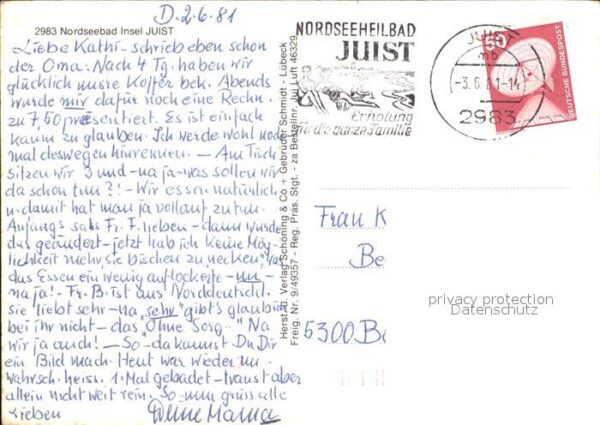 D. 2.6.81
2983 Nordseebad Insel JUIST
Liebe Kathi - schrieb eben schon
der Oma: Nach 4 Tg. haben wir
glücklich unsre Koffer bek. Abends
wurde mir dafür noch eine Rechn.
zu 7,50 präsentiert. Es ist einfach
kaum zu glauben. Ich werde wohl noch
mal deswegen hinrennen. - Am Tisch
sitzen wir 3 und - na ja - was sollen wir
da schon tun?! - Wir essen natürlich
u. damit hat man ja vollauf zu tun.
Anfangs saß Fr. F. neben - dann wurde
das geändert - jetzt hab ich keine Mög-
lichkeit mehr, sie bischen zu necken, was
das Essen ein wenig auflockerte - un -
na ja! - Fr. B. ist aus Norddeutschl.
Sie "liebt sehr - na, sehr" gibt's glaub ich
bei ihr nicht - das "Ohne Sorg -" Na
wir ja auch! - So - da kannst Du Dir
ein Bild mach. Heut war's wieder
wahrsch. heiss. 1. Mal gebadet - traust aber
allein nicht weit rein. So - nun grüss alle
Lieben Deine Mama
Herst. u. Verlag Schöning & Co + Gebrüder Schmidt - Lübeck
Freig. Nr. 9/49357 - Reg. Präs. Stgt. - zu Bestellnr. Juj Luft 46329
NORDSEEHEILBAD
JUIST
Erholung
für die ganze Familie
JUIST
mb
-3.6.81-14
2983
50
DEUTSCHE BUNDESPOST
Frau K
Be
5300 Bo
privacy protection
Datenschutz